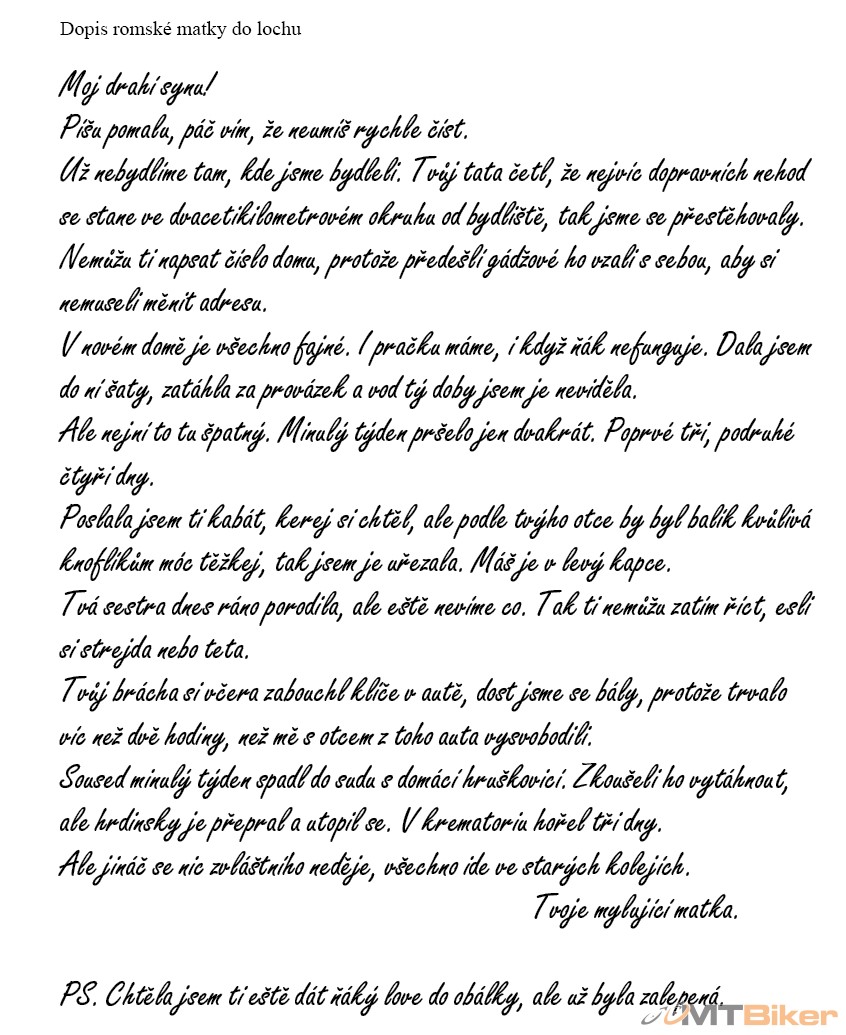 Dopis romské matky do lochu
Moj drahí synu!
Píšu pomalu, páč vím, že neumíš rychle číst.
Už nebydlíme tam, kde jsme bydleli. Tvůj tata četl, že nejvíc dopravních nehod
se stane ve dvacetikilometrovém okruhu od bydliště, tak jsme se přestěhovaly.
Nemůžu ti napsat číslo domu, protože předešlí gádžové ho vzali s sebou, aby si
nemuseli měnit adresu.
V novém domě je všechno fajné. I pračku máme, i když ňák nefunguje. Dala jsem
do ní šaty, zatáhla za provázek a vod tý doby jsem je neviděla.
Ale nejní to tu špatný. Minulý týden pršelo jen dvakrát. Poprvé tři, podruhé
čtyři dny.
Poslala jsem ti kabát, kerej si chtěl, ale podle tvýho otce by byl balík kvůlivá
knoflíkům móc těžkej, tak jsem je uřezala. Máš je v levý kapce.
Tvá sestra dnes ráno porodila, ale eště nevíme co. Tak ti nemůžu zatím říct, esli
si strejda nebo teta.
Tvůj brácha si včera zabouchl klíče v autě, dost jsme se bály, protože trvalo
víc než dvě hodiny, než mě s otcem z toho auta vysvobodili.
Soused minulý týden spadl do sudu s domácí hruškovicí. Zkoušeli ho vytáhnout,
ale hrdinsky je přepral a utopil se. V krematoriu hořel tři dny.
Ale jináč se nic zvláštního neděje, všechno ide ve starých kolejích.
Tvoje mylující matka.
PS. Chtěla jsem ti eště dát ňáký love do obálky, ale už byla zalepená.
MTBiker